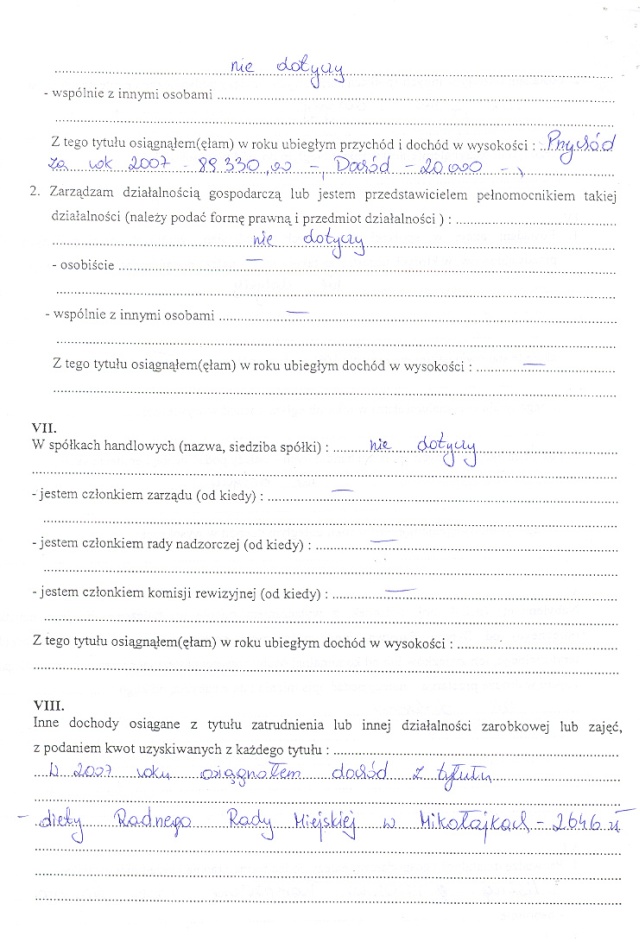 nie dotyczy
- wspólnie z innymi osobami
Z tego tytułu osiągnąłem(ęłam) w roku ubiegłym przychód i dochód w wysokości : Przychód
za rok 2007 - 88.330,00 - , Dochód - 20.000 -,
2. Zarządzam działalnością gospodarczą lub jestem przedstawicielem pełnomocnikiem takiej
działalności (należy podać formę prawną i przedmiot działalności ) :
nie dotyczy
- osobiście —
- wspólnie z innymi osobami —
Z tego tytułu osiągnąłem(ęłam) w roku ubiegłym dochód w wysokości : —
VII.
W spółkach handlowych (nazwa, siedziba spółki) : nie dotyczy
- jestem członkiem zarządu (od kiedy) : —
- jestem członkiem rady nadzorczej (od kiedy) : —
- jestem członkiem komisji rewizyjnej (od kiedy) : —
Z tego tytułu osiągnąłem(ęłam) w roku ubiegłym dochód w wysokości :
VIII.
Inne dochody osiągane z tytułu zatrudnienia lub innej działalności zarobkowej lub zajęć,
z podaniem kwot uzyskiwanych z każdego tytułu :
W 2007 roku osiągnołem dochód z tytułu
- diety Radnego Rady Miejskiej w Mikołajkach - 2646 zł